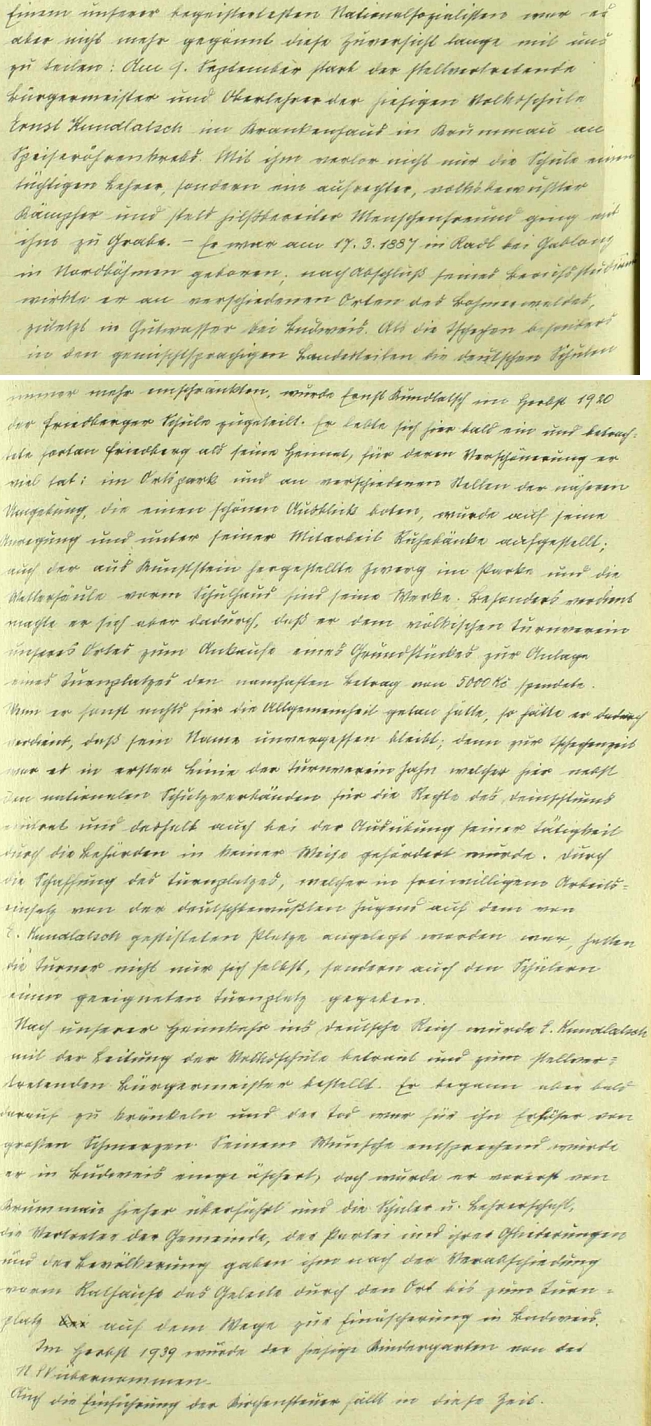 Einem unserer begeistertesten Nationalsozialisten war es
aber nicht mehr gegönnt diese Zuversicht lange mit uns
zu teilen: Am 1. September starb der stellvertretende
Bürgermeister und Oberlehrer der hiesigen Volksschule
Ernst Kundlatsch im Krankenhaus in Krummau an
Speiseröhrenkrebs. Mit ihm verlor nicht nur die Schule einen
tüchtigen Lehrer, sondern ein aufrechter, volksbewußter
Kämpfer und stets hilfsbereiter Menschenfreund ging mit
ihm zu Grabe. – Er war am 17.3.1887 in Radl bei Gablonz
in Nordböhmen geboren; nach Abschluß seines Berufsstudiums
wirkte er an verschiedenen Orten des Böhmerwaldes,
zuletzt in Gutwasser bei Budweis. Als die Tschechen besonders
in den gemischtsprachigen Landesteilen die deutschen Schulen
immer mehr einschränkten, wurde Ernst Kundlatsch im Herbst 1920
der Friedberger Schule zugeteilt. Er lebte sich hier bald ein und betrach-
tete fortan Friedberg als seine Heimat, für deren Verschönerung er
viel tat: im Ortspark und an verschiedenen Stellen der näheren
Umgebung, die einen schönen Ausblick boten, wurde auf seine
Anregung und unter seiner Mitarbeit Ruhebänke aufgestellt;
auch der aus Kunststein hergestellte Zwerg im Parke und die
Wettersäule vorm Schulhaus sind seine Werke. Besonders verdient
machte er sich aber dadurch, daß er dem völkischen Turnverein
unseres Ortes zum Ankaufe eines Grundstückes zur Anlage
eines Turnplatzes den namhaften Betrag von 5000 Kč spendete.
Wenn er sonst nichts für die Allgemeinheit getan hätte, so hätte er dadurch
verdient, daß sein Name unvergessen bleibt; denn zur Tschechenzeit
war es in erster Linie der Turnverein Jahn welcher hier nebst
den nationalen Schutzverbänden für die Rechte des Deutschtums
eintrat und deshalb auch bei der Ausübung seiner Tätigkeit
durch die Behörden in keiner Weise gefördert wurde. Durch
die Schaffung des Turnplatzes, welcher in freiwilligem Arbeits-
einsatz von der deutschbewußten Jugend auf dem von
E. Kundlatsch gestifteten Platze angelegt worden war, hatten
die Turner nicht nur sich selbst, sondern auch den Schülern
einen geeigneten Turnplatz gegeben.
Nach unserer Heimkehr ins deutsche Reich wurde E. Kundlatsch
mit der Leitung der Volksschule betraut und zum stellver-
tretenden Bürgermeister bestellt. Er begann aber bald
darauf zu kränkeln und der Tod war für ihn Erlöser von
großen Schmerzen. Seinem Wunsche entsprechend wurde
er in Budweis eingeäschert, doch wurde er vorerst von
Krummau hieher überführt und die Schüler u. Lehrerschaft,
die Vertreter der Gemeinde, der Partei und ihrer Gliederungen
und der Bevölkerung gaben ihm nach der Verabschiedung
vorm Rathause das Geleite durch den Ort bis zum Turn-
platz auf dem Wege zur Einäscherung in Budweis.
Im Herbst 1939 wurde der hiesige Kindergarten von der
N.S.V. übernommen.
Auch die Einführung der Kirchensteuer fällt in diese Zeit.